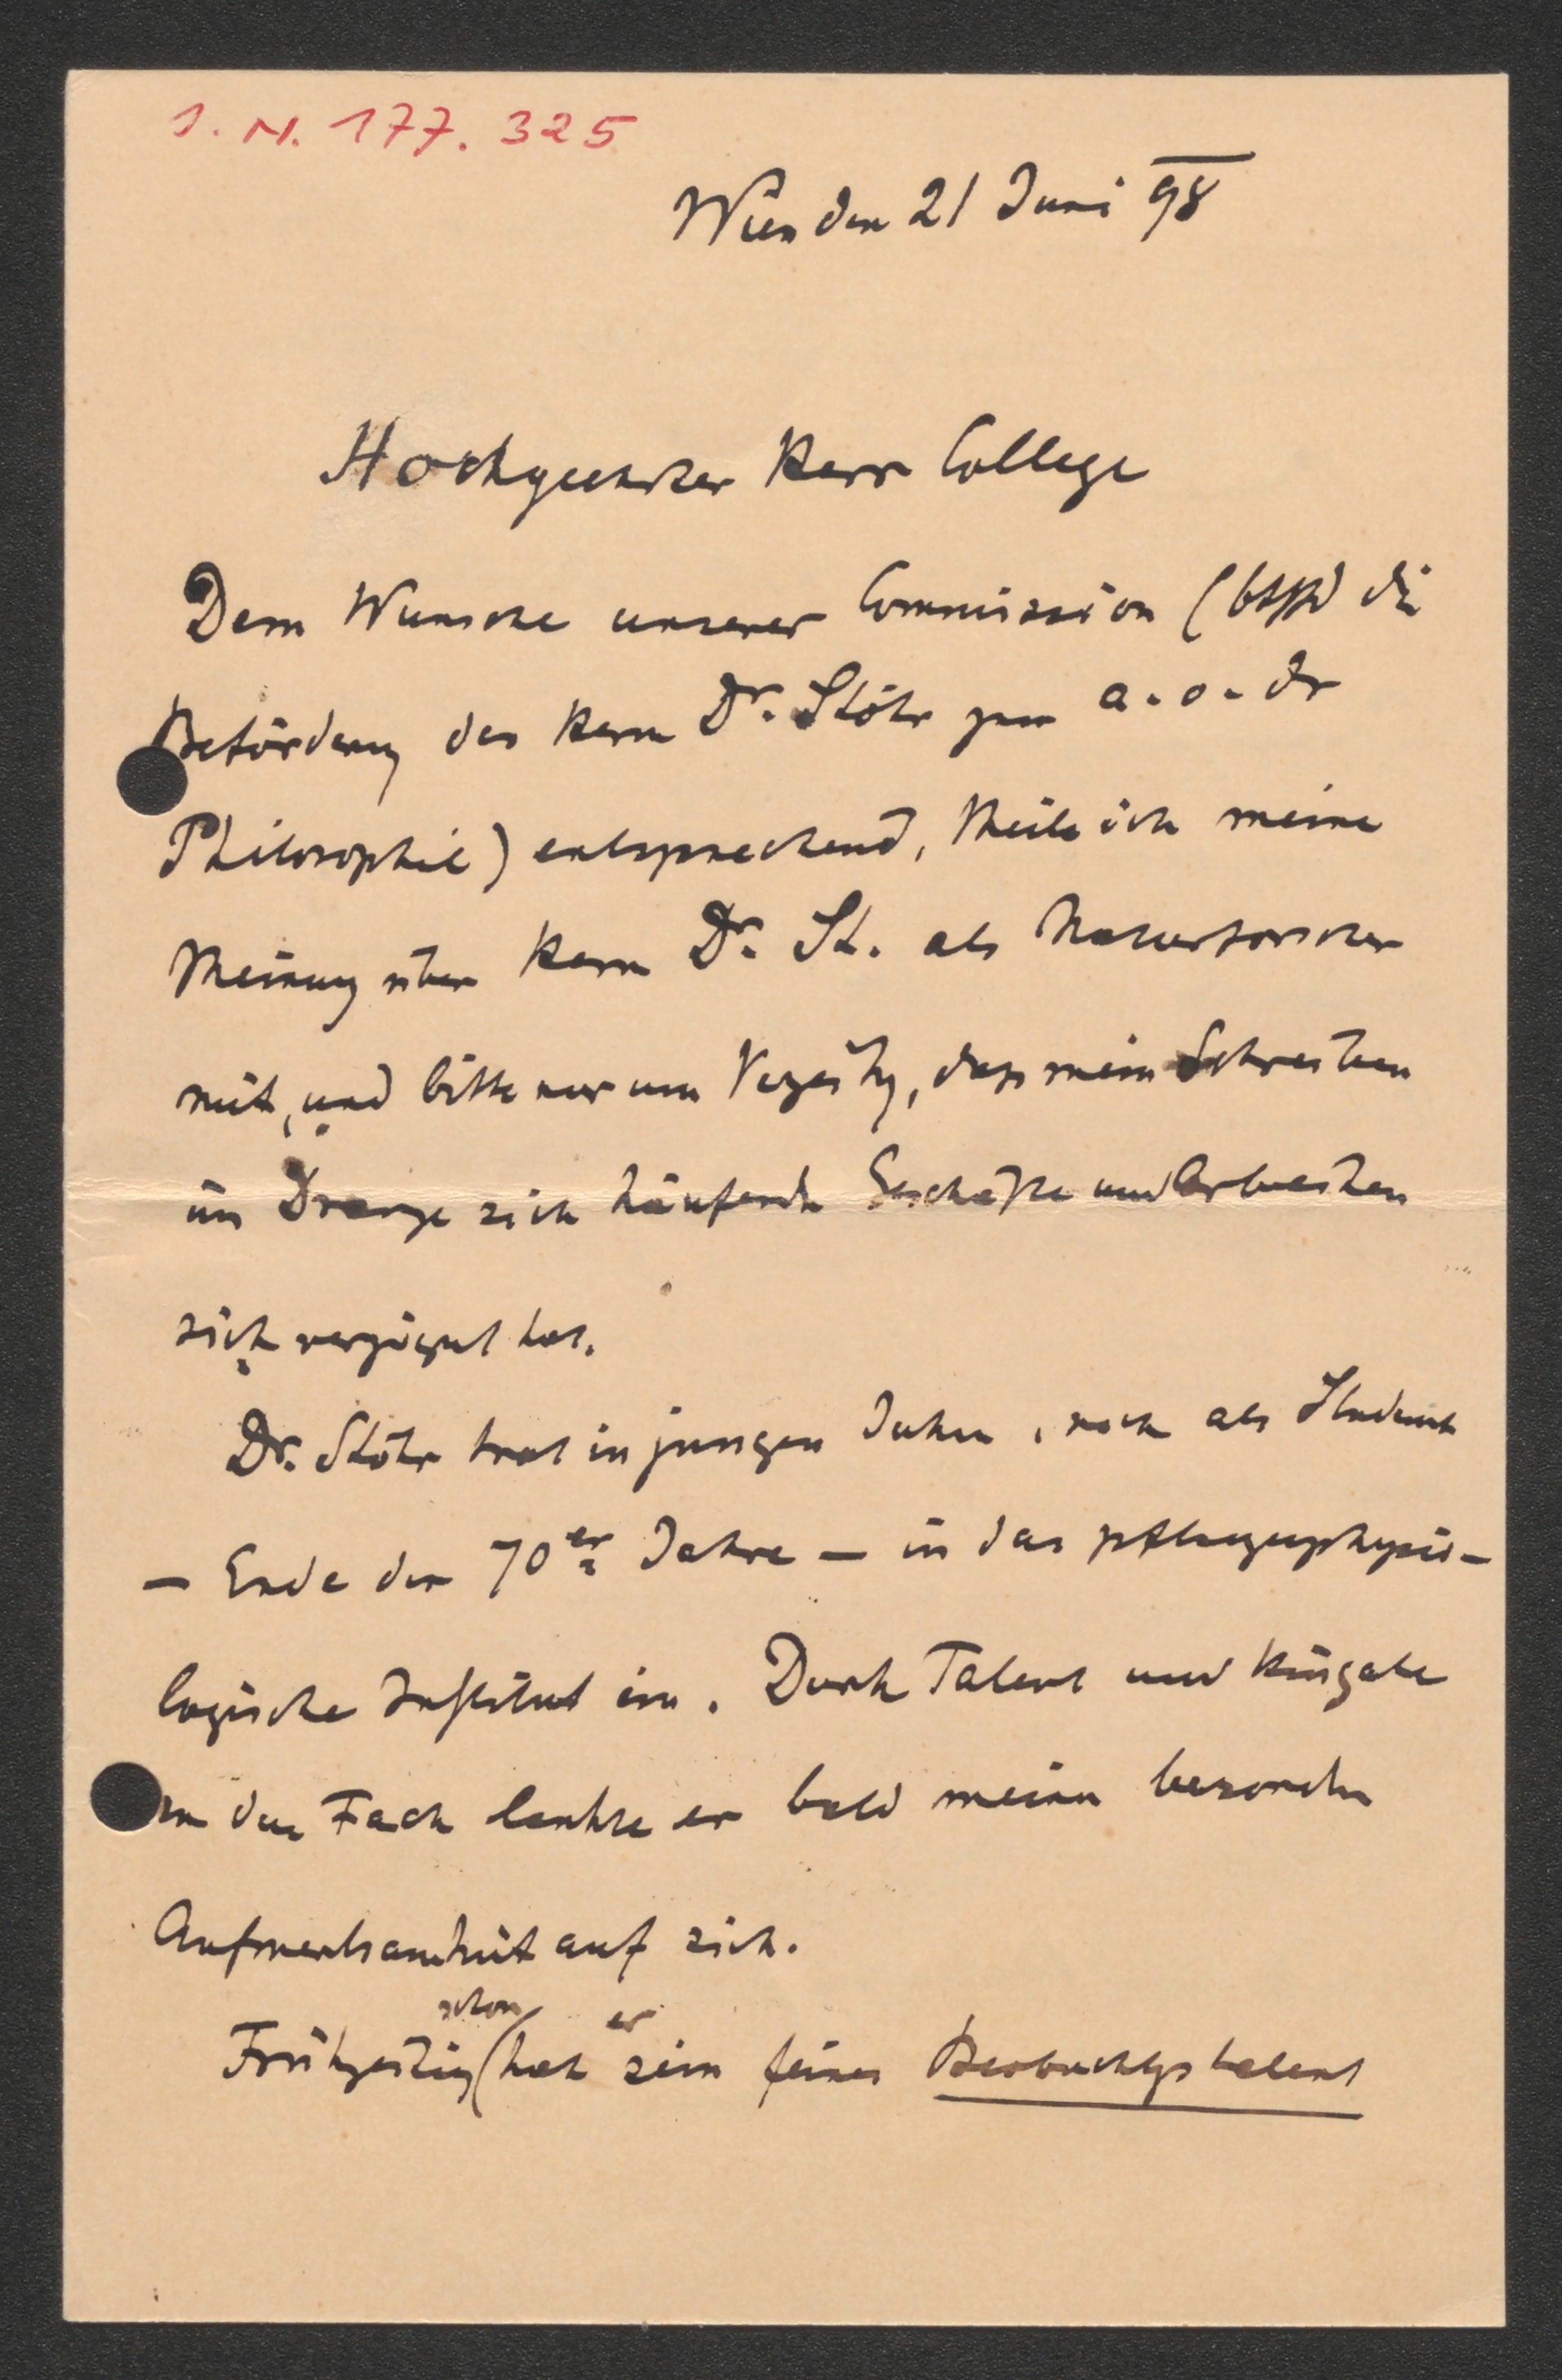 I. N. 177.325
Wien den 21 Juni 98
Hochgeehrter Herr College
Dem Wunsche unserer Commission (btffd die
Beförderung des Herrn Dr. Stöhr zum a. o. dr
Philosophie) entsprechend, theile ich meine
Meinung über Herrn Dr. St. als Naturforscher
mit, und bitte nur um Verzeihg, dass mein Schreiben
im Drange sich häufender Geschäfte und Arbeiten
sich verzögert hat.
Dr. Stöhr trat in jungen Jahren, noch als Student
— Ende der 70er Jahre — in das pflanzenphysio-
logische Institut ein. Durch Talent und Hingabe
an das Fach lenkte er bald meine besondere
Aufmerksamkeit auf sich.
Frühzeitig schon hat er sein feines Beobachtgstalent